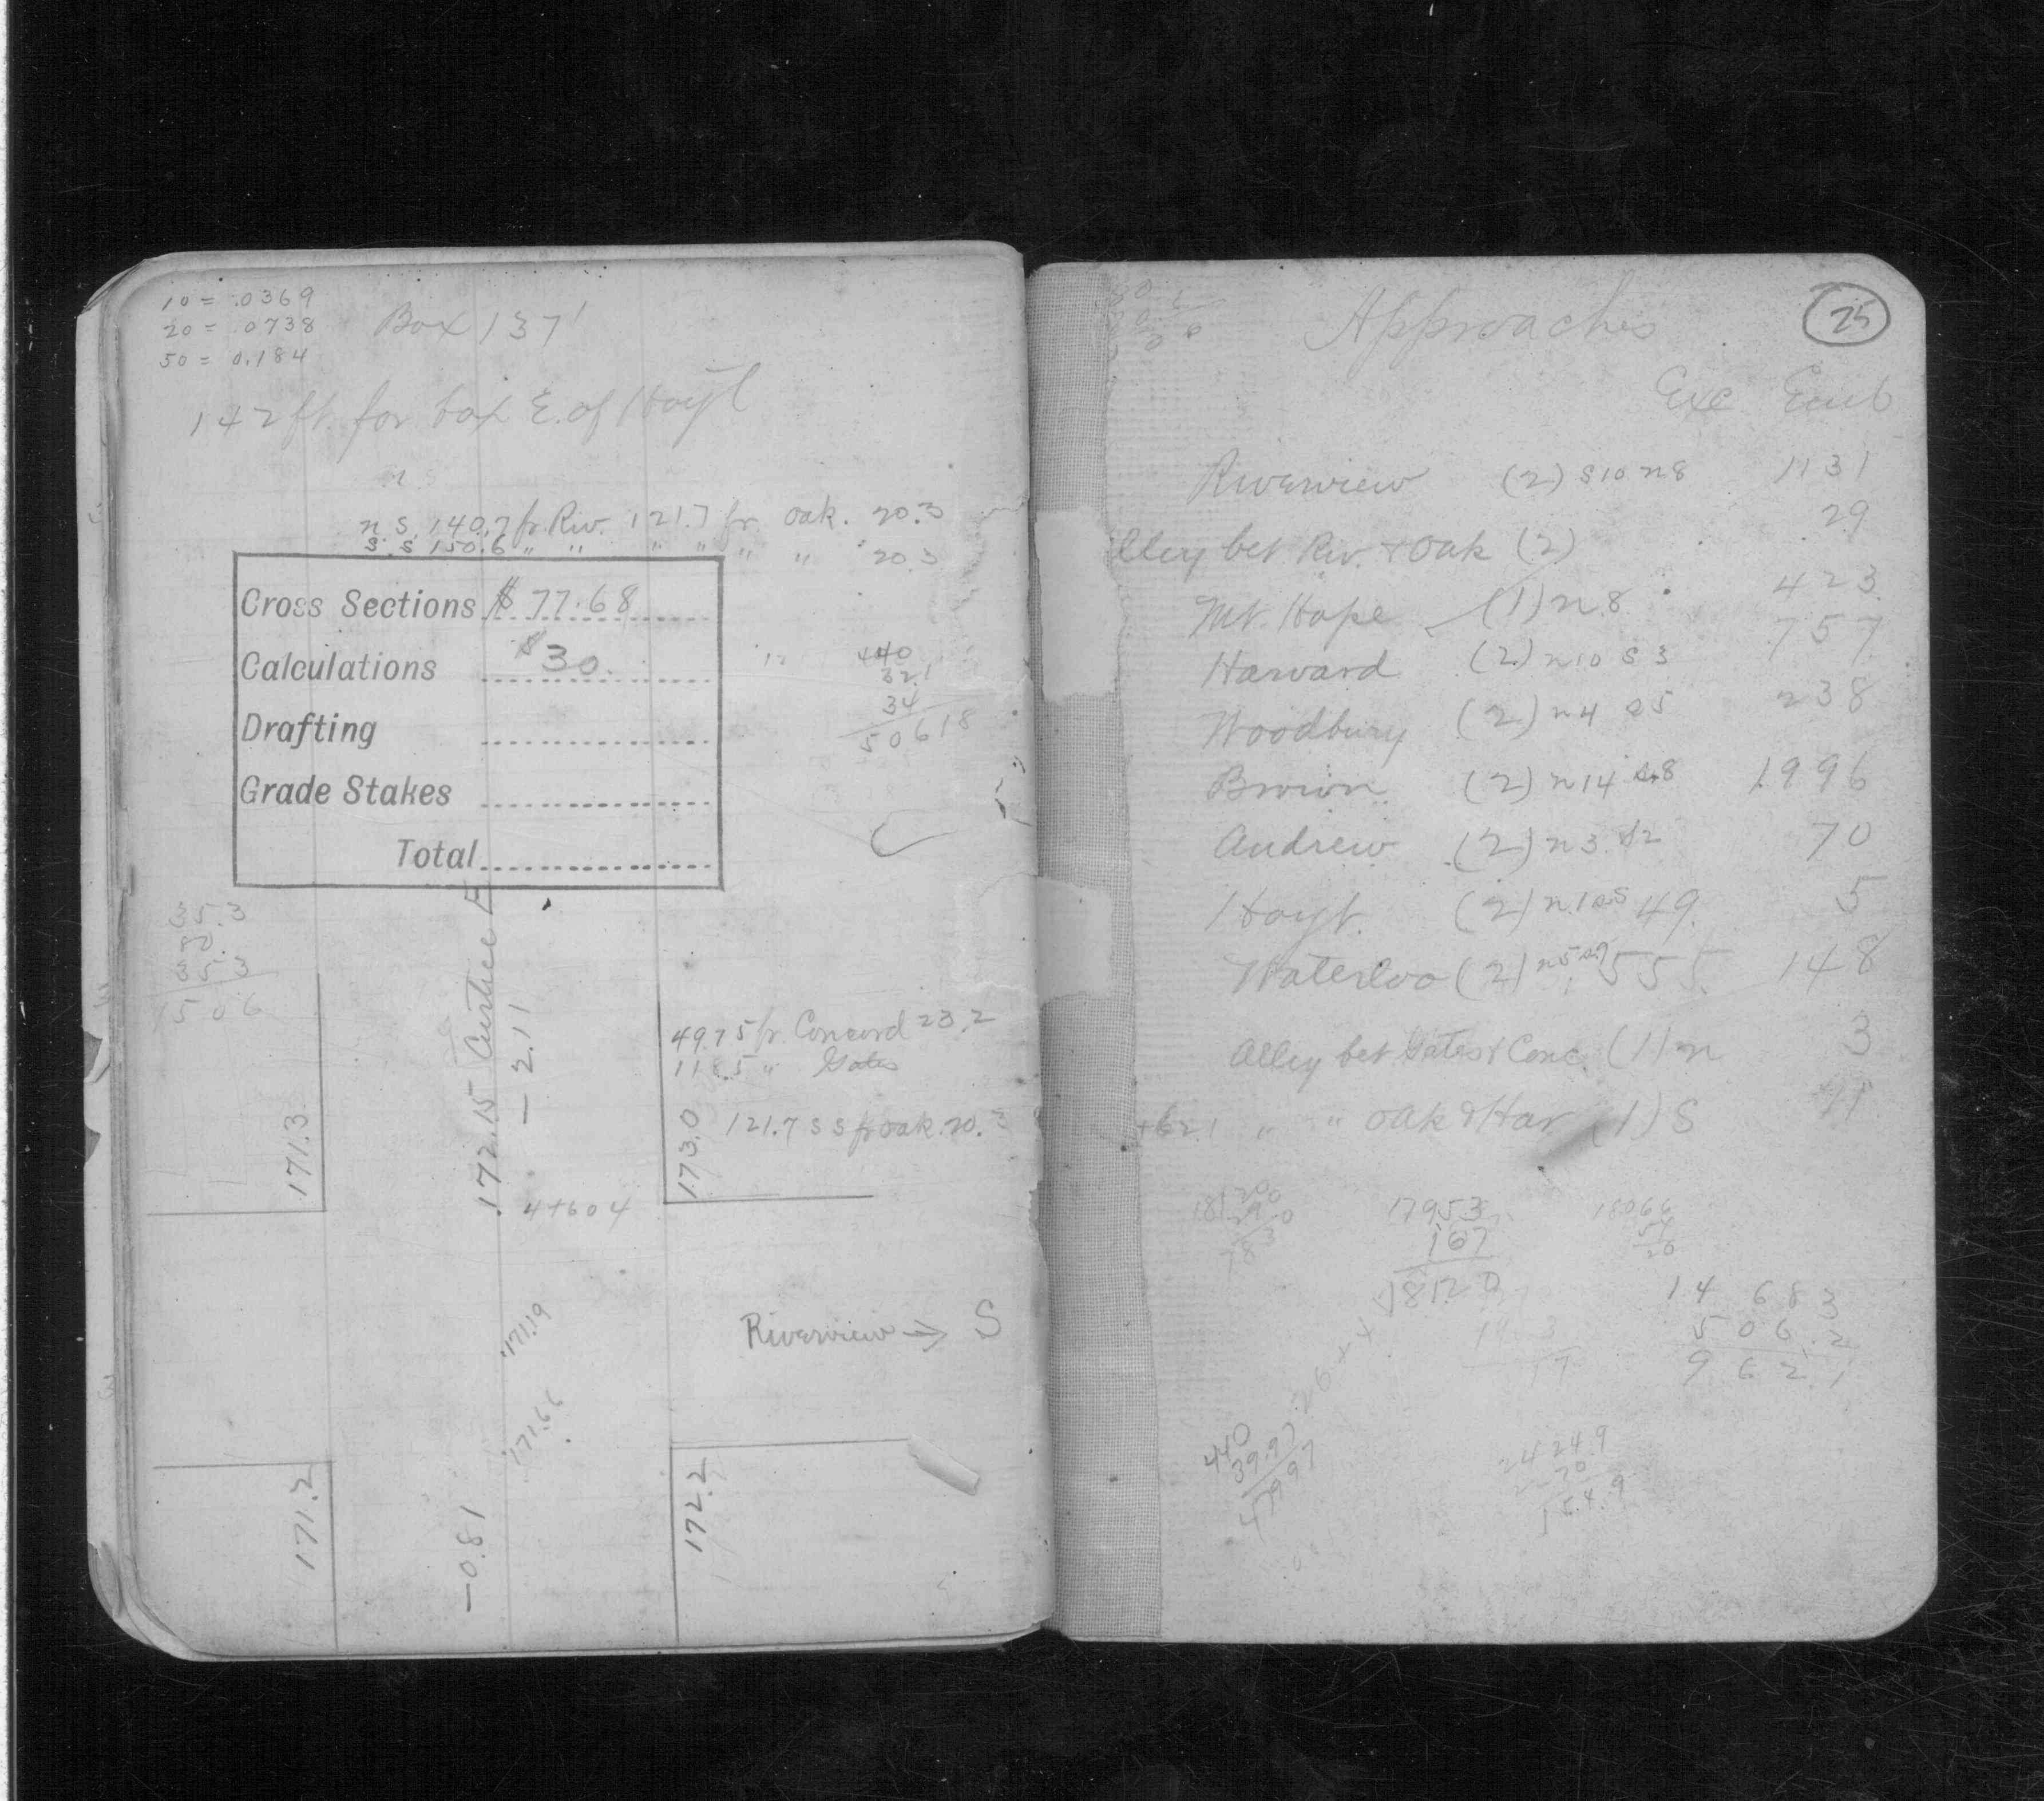 10 = .0369
20 = .0738
50 = 0.184
Box 137'
142 ft. for box E. of Hoyt
n s
n. S. 140.7 fr Riv. 121.7 fr oak. 20.3
S. S 150.6 " " " " " " 20.3
Cross Sections $ 77.68
Calculations $ 30.
Drafting
Grade Stakes
Total
440
32.1
34
50618
506
172.15 Curtice
- 2.11
49.75 fr. Concord 23.2
" Gates
171.3
173.0
121.7 S S fr oak. 20.3
4+604
171.19
Riverview → S
171.66
171.2
- 0.81
172.2
25
Approaches
Exc Emb
Riverview (2) S10 n8 1131
Alley bet Riv. + Oak (2) 29
Mt. Hope (1) n8 423
Harvard (2) n10 S 3 757
Woodbury (2) n4 S5 238
Brown (2) n14 S8 1996
Andrew (2) n3 S2 70
Hoyt. (2) n1 S5 49. 5
Waterloo (2) n5 S7 555 148
Alley bet Gates & Conc. (1) n 3
+62.1 " " oak & Har (1) S 11
17953
167
18120
18066
14 683
506.2
962.1
440
39.97
479.97
424.9
20